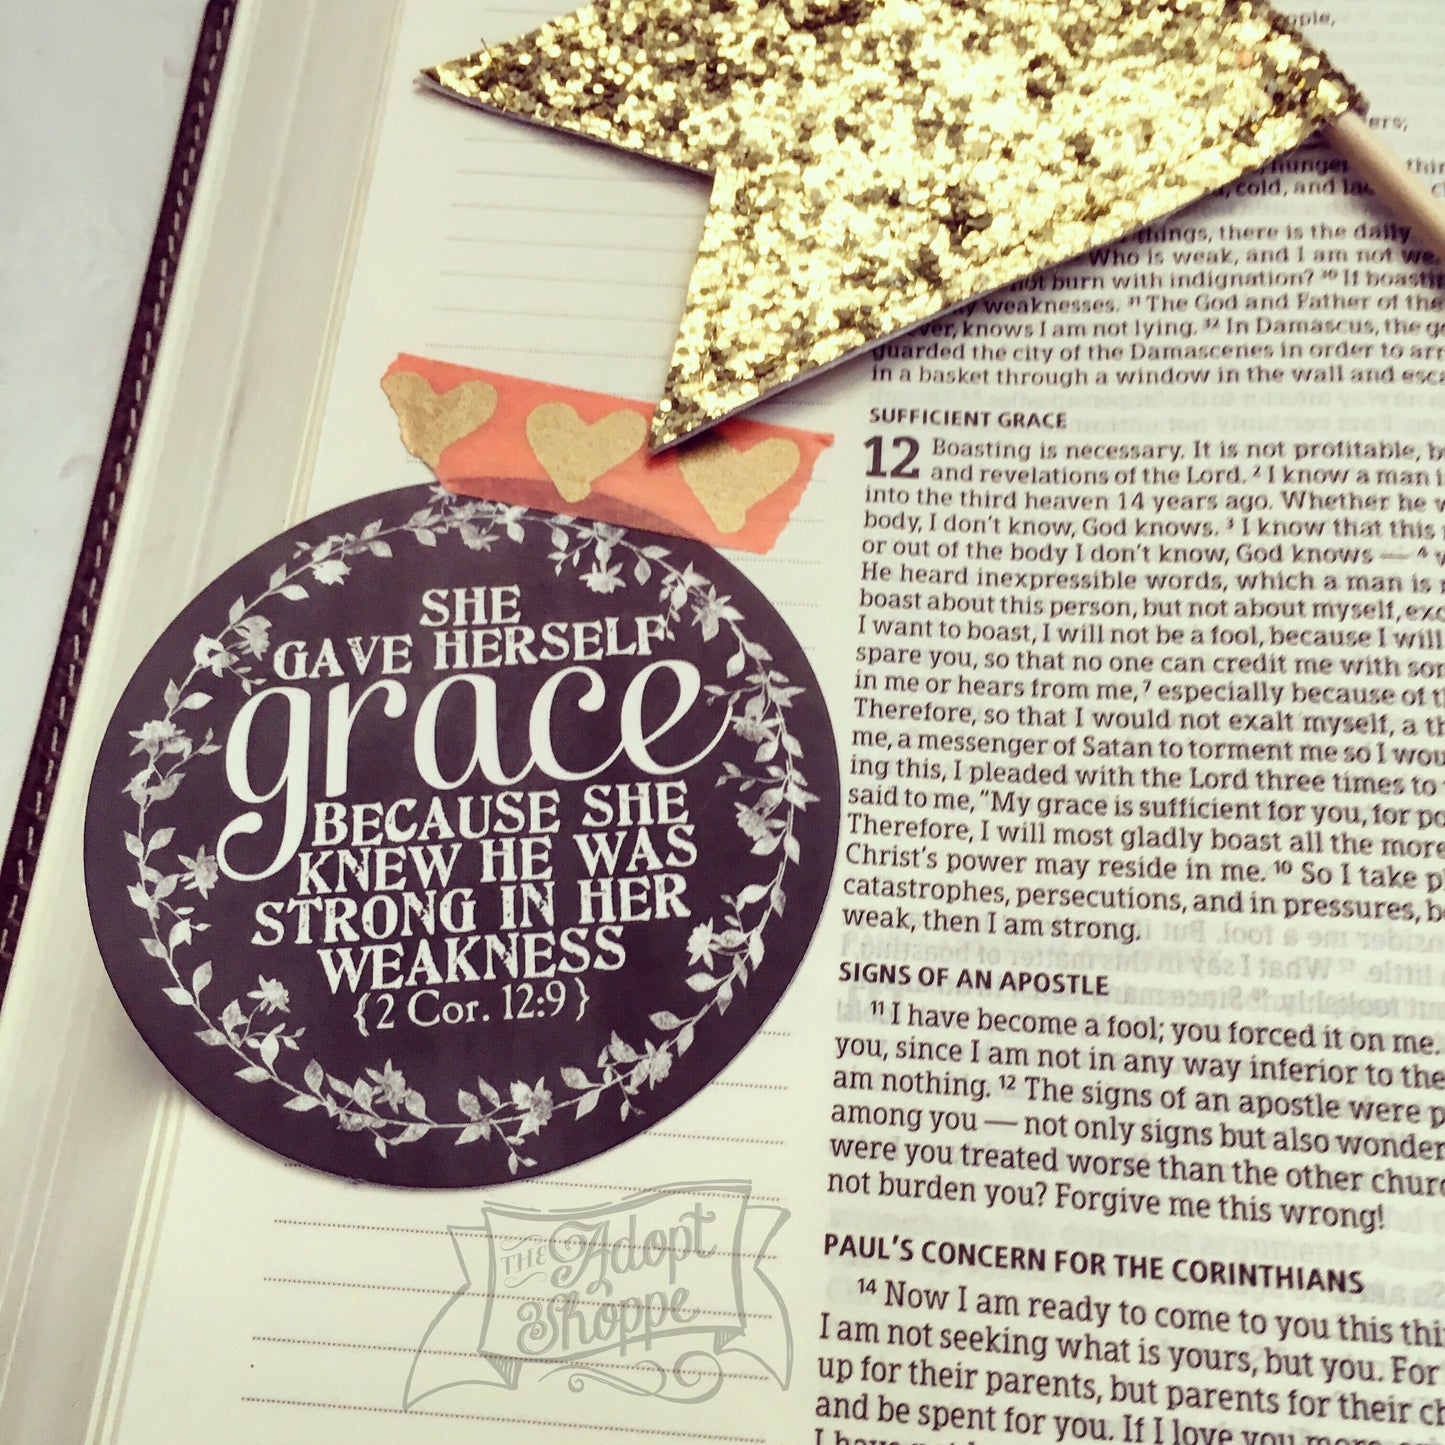 SHE
GAVE HERSELF
grace
BECAUSE SHE
KNEW HE WAS
STRONG IN HER
WEAKNESS
{2 Cor. 12:9}
THE Adopt
Shoppe
ople,
ers,
hunger thir
cold, and
things, there is the daily
Who is weak, and I am not we
not burn with indignation? 30 If boasti
weaknesses. 31 The God and Father of the
ver, knows I am not lying. 32 In Damascus, the go
guarded the city of the Damascenes in order to arr
in a basket through a window in the wall and esca
SUFFICIENT GRACE
12 Boasting is necessary. It is not profitable, b
and revelations of the Lord. 2 I know a man i
into the third heaven 14 years ago. Whether he w
body, I don't know, God knows. 3 I know that this
or out of the body I don't know, God knows — 4 w
He heard inexpressible words, which a man is n
boast about this person, but not about myself, exc
I want to boast, I will not be a fool, because I will
spare you, so that no one can credit me with som
in me or hears from me, 7 especially because of t
Therefore, so that I would not exalt myself, a th
me, a messenger of Satan to torment me so I wou
ing this, I pleaded with the Lord three times to
said to me, "My grace is sufficient for you, for po
Therefore, I will most gladly boast all the more
Christ's power may reside in me. 10 So I take pl
catastrophes, persecutions, and in pressures, be
weak, then I am strong.
SIGNS OF AN APOSTLE
11 I have become a fool; you forced it on me.
you, since I am not in any way inferior to the
am nothing. 12 The signs of an apostle were p
among you — not only signs but also wonder
were you treated worse than the other churc
not burden you? Forgive me this wrong!
PAUL'S CONCERN FOR THE CORINTHIANS
14 Now I am ready to come to you this thi
I am not seeking what is yours, but you. For
up for their parents, but parents for their ch
and be spent for you. If I love you more,